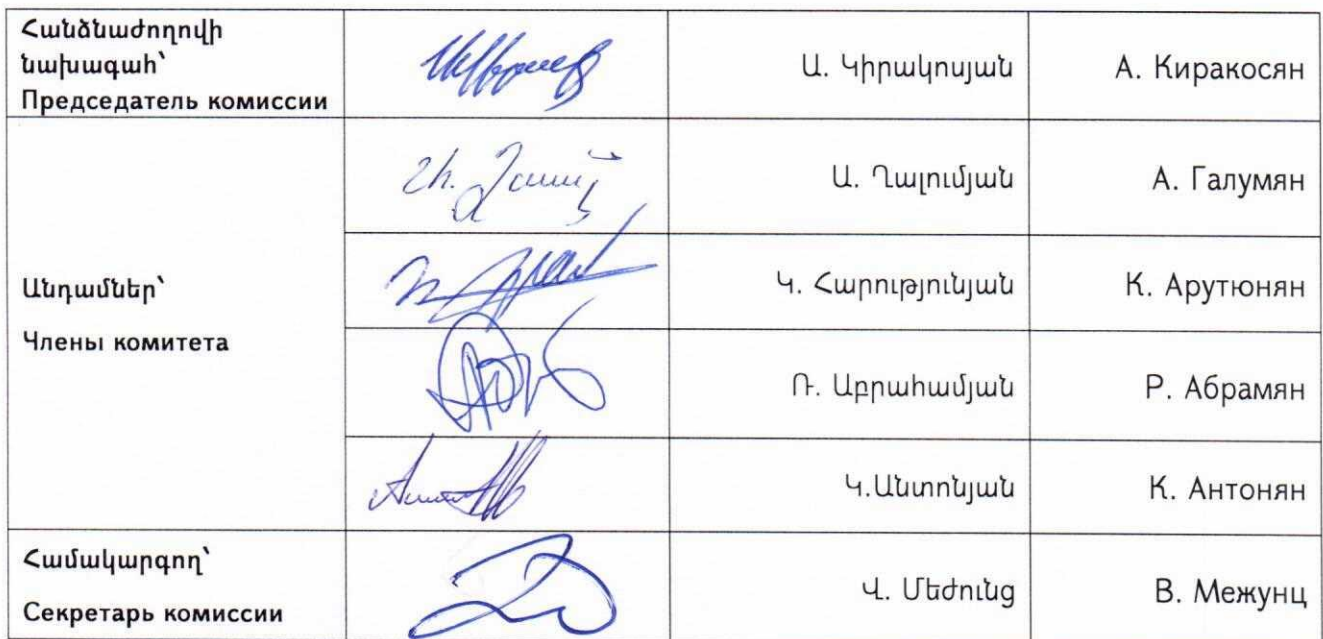 Հանձնաժողովի
նախագահ՝
Председатель комиссии
Ա. Կիրակոսյան
А. Киракосян
Ա. Ղալումյան
А. Галумян
Անդամներ՝
Члены комитета
Կ. Հարությունյան
К. Арутюнян
Ռ. Աբրահամյան
Р. Абрамян
Կ.Անտոնյան
К. Антонян
Համակարգող՝
Секретарь комиссии
Վ. Մեժունց
В. Межунц